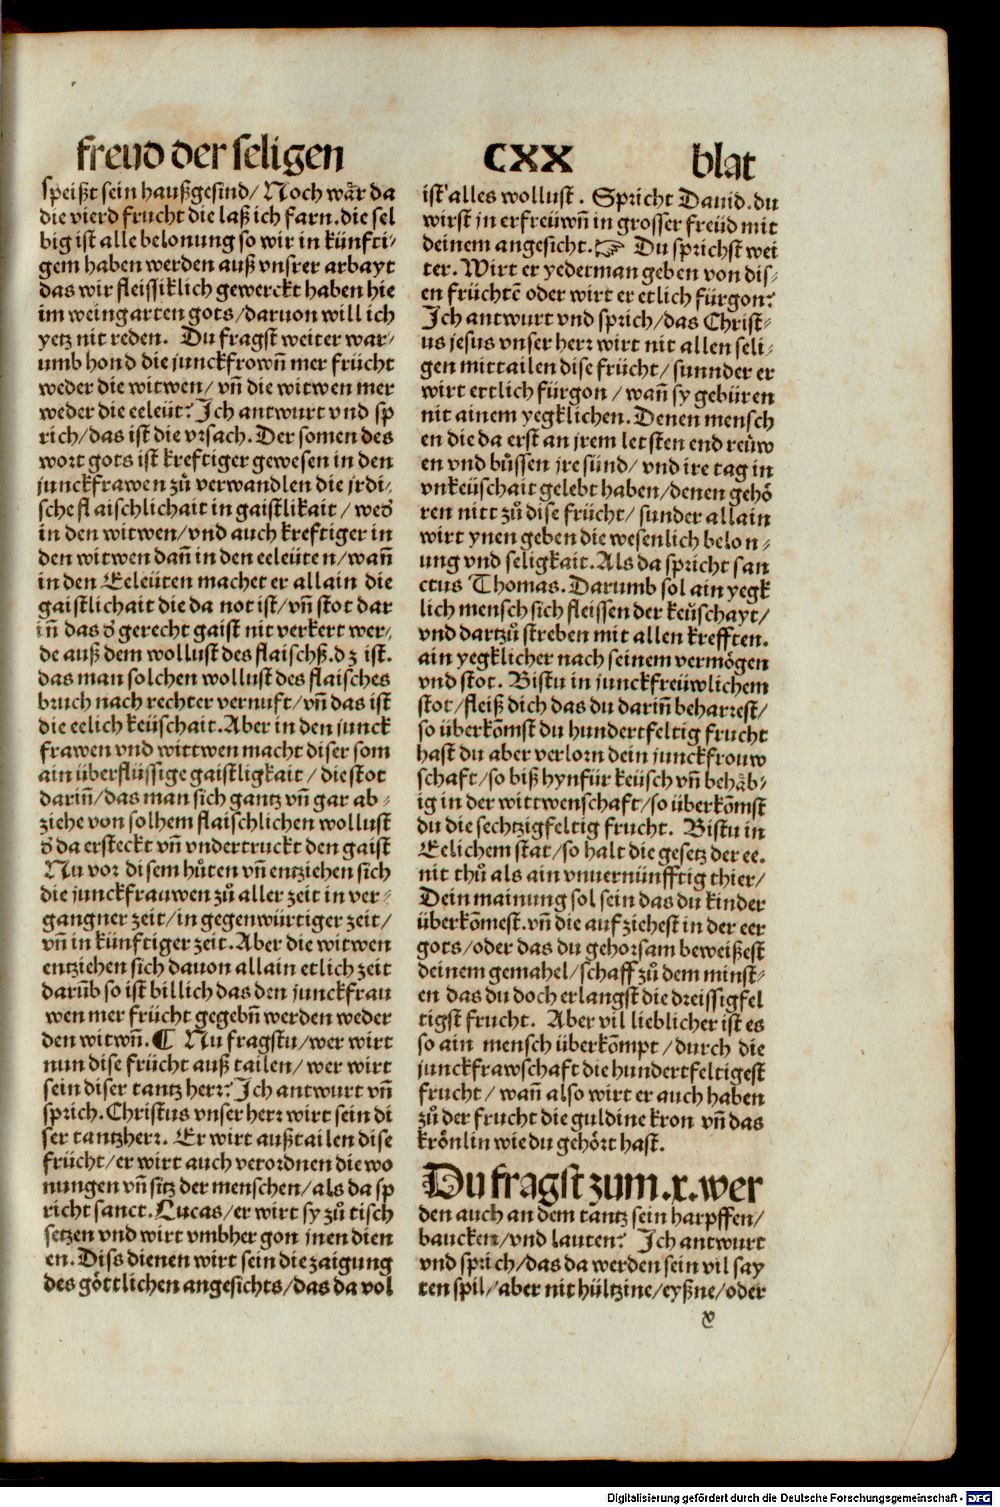 freud der seligen CXX blat
speißt sein haußgesind/ Noch wår da
die vierd frucht die laß ich farn. die sel
big ist alle belonung so wir in künfti-
gem haben werden auß vnsrer arbayt
das wir fleissiklich gewerckt haben hie
im weingarten gots/daruon will ich
yetz nit reden. Du fragst weiter war-
umb hond die junckfrowñ mer frücht
weder die witwen/ vñ die witwen mer
weder die eeleüt? Ich antwurt vnd sp
rich/das ist die vrsach. Der somen des
wort gots ist kreftiger gewesen in den
junckfrawen zů verwandlen die jrdi-
sche flaischlichait in gaistlikait / wed̕
in den witwen/vnd auch kreftiger in
den witwen dañ in den eeleüten/wañ
in den Eeleüten machet er allain die
gaistlichait die da not ist/vñ stot dar
iñ das d̕ gerecht gaist nit verkert wer-
de auß dem wollust des flaischß.dz ist.
das man solchen wollust des flaisches
bruch nach rechter vernuft/vñ das ist
die eelich keüschait. Aber in den junck
frawen vnd wittwen macht diser som
ain überflüssige gaistligkait / die stot
dariñ/das man sich gantz vñ gar ab-
ziehe von solhem flaischlichen wollust
d̕ da ersteckt vñ vndertruckt den gaist
Nu vor disem hůten vñ entziehen sich
die junckfrauwen zů aller zeit in ver-
gangner zeit/in gegenwürtiger zeit/
vñ in künftiger zeit. Aber die witwen
entziehen sich dauon allain etlich zeit
darūb so ist billich das den junckfrau
wen mer frücht gegebñ werden weder
den witwñ. ¶ Nu fragstu/wer wirt
nun dise frücht auß tailen/ wer wirt
sein diser tantz herr? Ich antwurt vñ
sprich. Christus vnser herr wirt sein di
ser tantzherr. Er wirt außtailen dise
frücht/er wirt auch verordnen die wo
nungen vñ sitz der menschen/als da sp
richt sanct. Lucas/er wirt sy zů tisch
setzen vnd wirt vmbher gon jnen dien
en. Diss dienen wirt sein die zaigung
des göttlichen angesichts/das da vol
ist alles wollust. Spricht Dauid. du
wirst jn erfreüwñ in grosser freüd mit
deinem angesicht. ☞ Du sprichst wei
ter. Wirt er yederman geben von dis-
en früchtē oder wirt er etlich fürgon?
Ich antwurt vnd sprich/das Christ-
us jesus vnser herr wirt nit allen seli-
gen mittailen dise frücht/ sunnder er
wirt ettlich fürgon / wañ sy gebüren
nit ainem yegklichen. Denen mensch
en die da erst an jrem letsten end reüw
en vnd bůssen jre sünd/ vnd ire tag in
vnkeüschait gelebt haben/denen gehö
ren nitt zů dise frücht/ sunder allain
wirt ynen geben die wesenlich belon-
ung vnd seligkait. Als da spricht san
ctus Thomas. Darumb sol ain yegk
lich mensch sich fleissen der keüschayt/
vnd dartzů streben mit allen krefften.
ain yegklicher nach seinem vermögen
vnd stot. Bistu in junckfreüwlichem
stot/fleiß dich das du dariñ beharrest/
so überkōmst du hundertfeltig frucht
hast du aber verlorn dein junckfrouw
schaft/so biß hynfür keüsch vñ behåb-
ig in der wittwenschaft/so überkōmst
du die sechtzigfeltig frucht. Bistu in
Eelichem stat/so halt die gesetz der ee.
nit thů als ain vnuernünfftig thier/
Dein mainung sol sein das du kinder
überkōmest.vñ die auf ziehest in der eer
gots/oder das du gehorsam beweißest
deinem gemahel/schaff zů dem minst-
en das du doch erlangst die dreissigfel
tigst frucht. Aber vil lieblicher ist es
so ain mensch überkōmpt/durch die
junckfrawschaft die hundertfeltigest
frucht / wañ also wirt er auch haben
zů der frucht die guldine kron vñ das
krönlin wie du gehört hast.
Du fragst zum.x.wer
den auch an dem tantz sein harpffen/
baucken/vnd lauten? Ich antwurt
vnd sprich/das da werden sein vil say
ten spil/aber nit hültzine/eyßne/oder
Digitalisierung gefördert durch die Deutsche Forschungsgemeinschaft - DFG